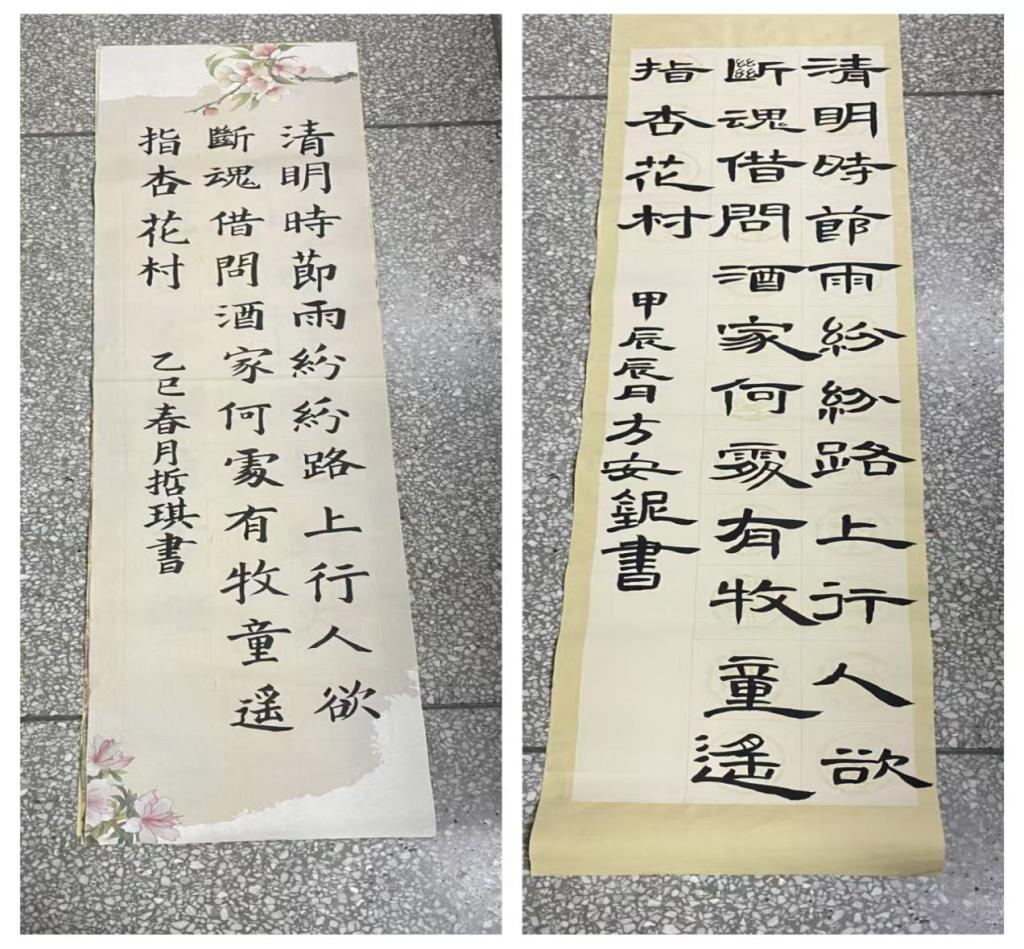 清明時節雨紛紛路上行人欲
斷魂借問酒家何處有牧童遥
指杏花村
乙巳春月哲琪書
清明時節雨紛紛路上行人欲
斷魂借問酒家何處有牧童遥
指杏花村
甲辰辰月方安鈮書